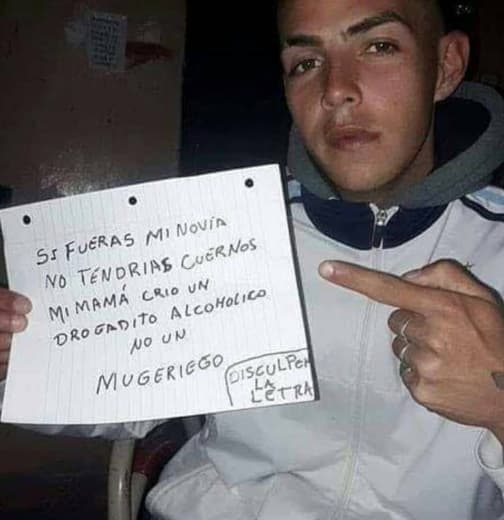 SI FUERAS MI NOVIA
NO TENDRIAS CUERNOS
MI MAMÁ CRIO UN
DROGADITO ALCOHOLICO
NO UN
MUGERIEGO
DISCULPEN
LA
LETRA